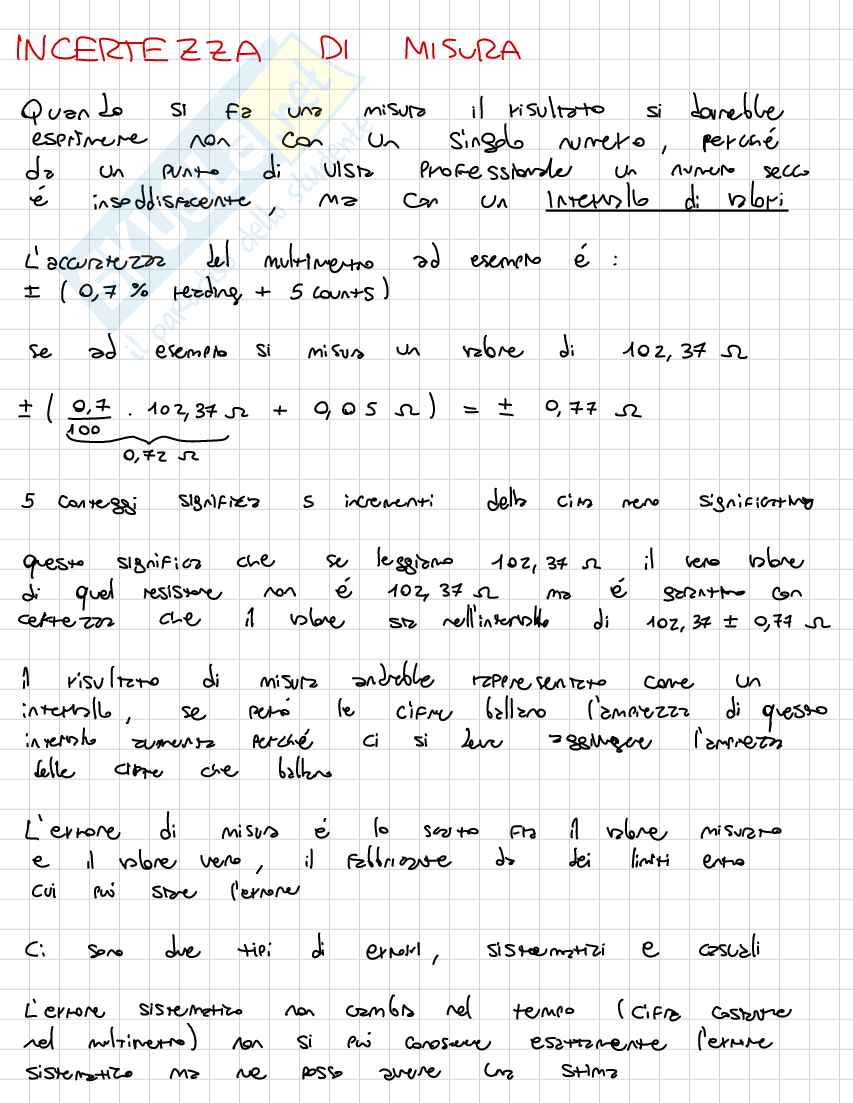 INCERTEZZA DI MISURA
Quando si fa una misura il risultato si dovrebbe
esprimere non con un singolo numero, perché
da un punto di vista professionale un numero secco
é insoddisfacente, ma con un intervallo di valori
L'accuratezza del multimetro ad esempio é :
± ( 0,7 % reading + 5 counts )
se ad esempio si misura un valore di 102,37 Ω
± ( 0,7/100 · 102,37 Ω + 0,05 Ω ) = ± 0,77 Ω
0,72 Ω
5 conteggi significa 5 incrementi della cifra meno significativa
questo significa che se leggiamo 102,37 Ω il vero valore
di quel resistore non é 102,37 Ω ma é garantito con
certezza che il valore sta nell'intervallo di 102,37 ± 0,77 Ω
Il risultato di misura andrebbe rappresentato come un
intervallo, se peró le cifre ballano l'ampiezza di questo
intervallo aumenta perché ci si deve aggiungere l'ampiezza
delle cifre che ballano
L'errore di misura é lo scarto fra il valore misurato
e il valore vero, il fabbricante da dei limiti entro
cui puó stare l'errore
Ci sono due tipi di errori, sistematici e casuali
L'errore sistematico non cambia nel tempo (cifra costante
nel multimetro) non si puó conoscere esattamente l'errore
sistematico ma ne posso avere una stima
SKUOLA.net
il paradiso dello studente